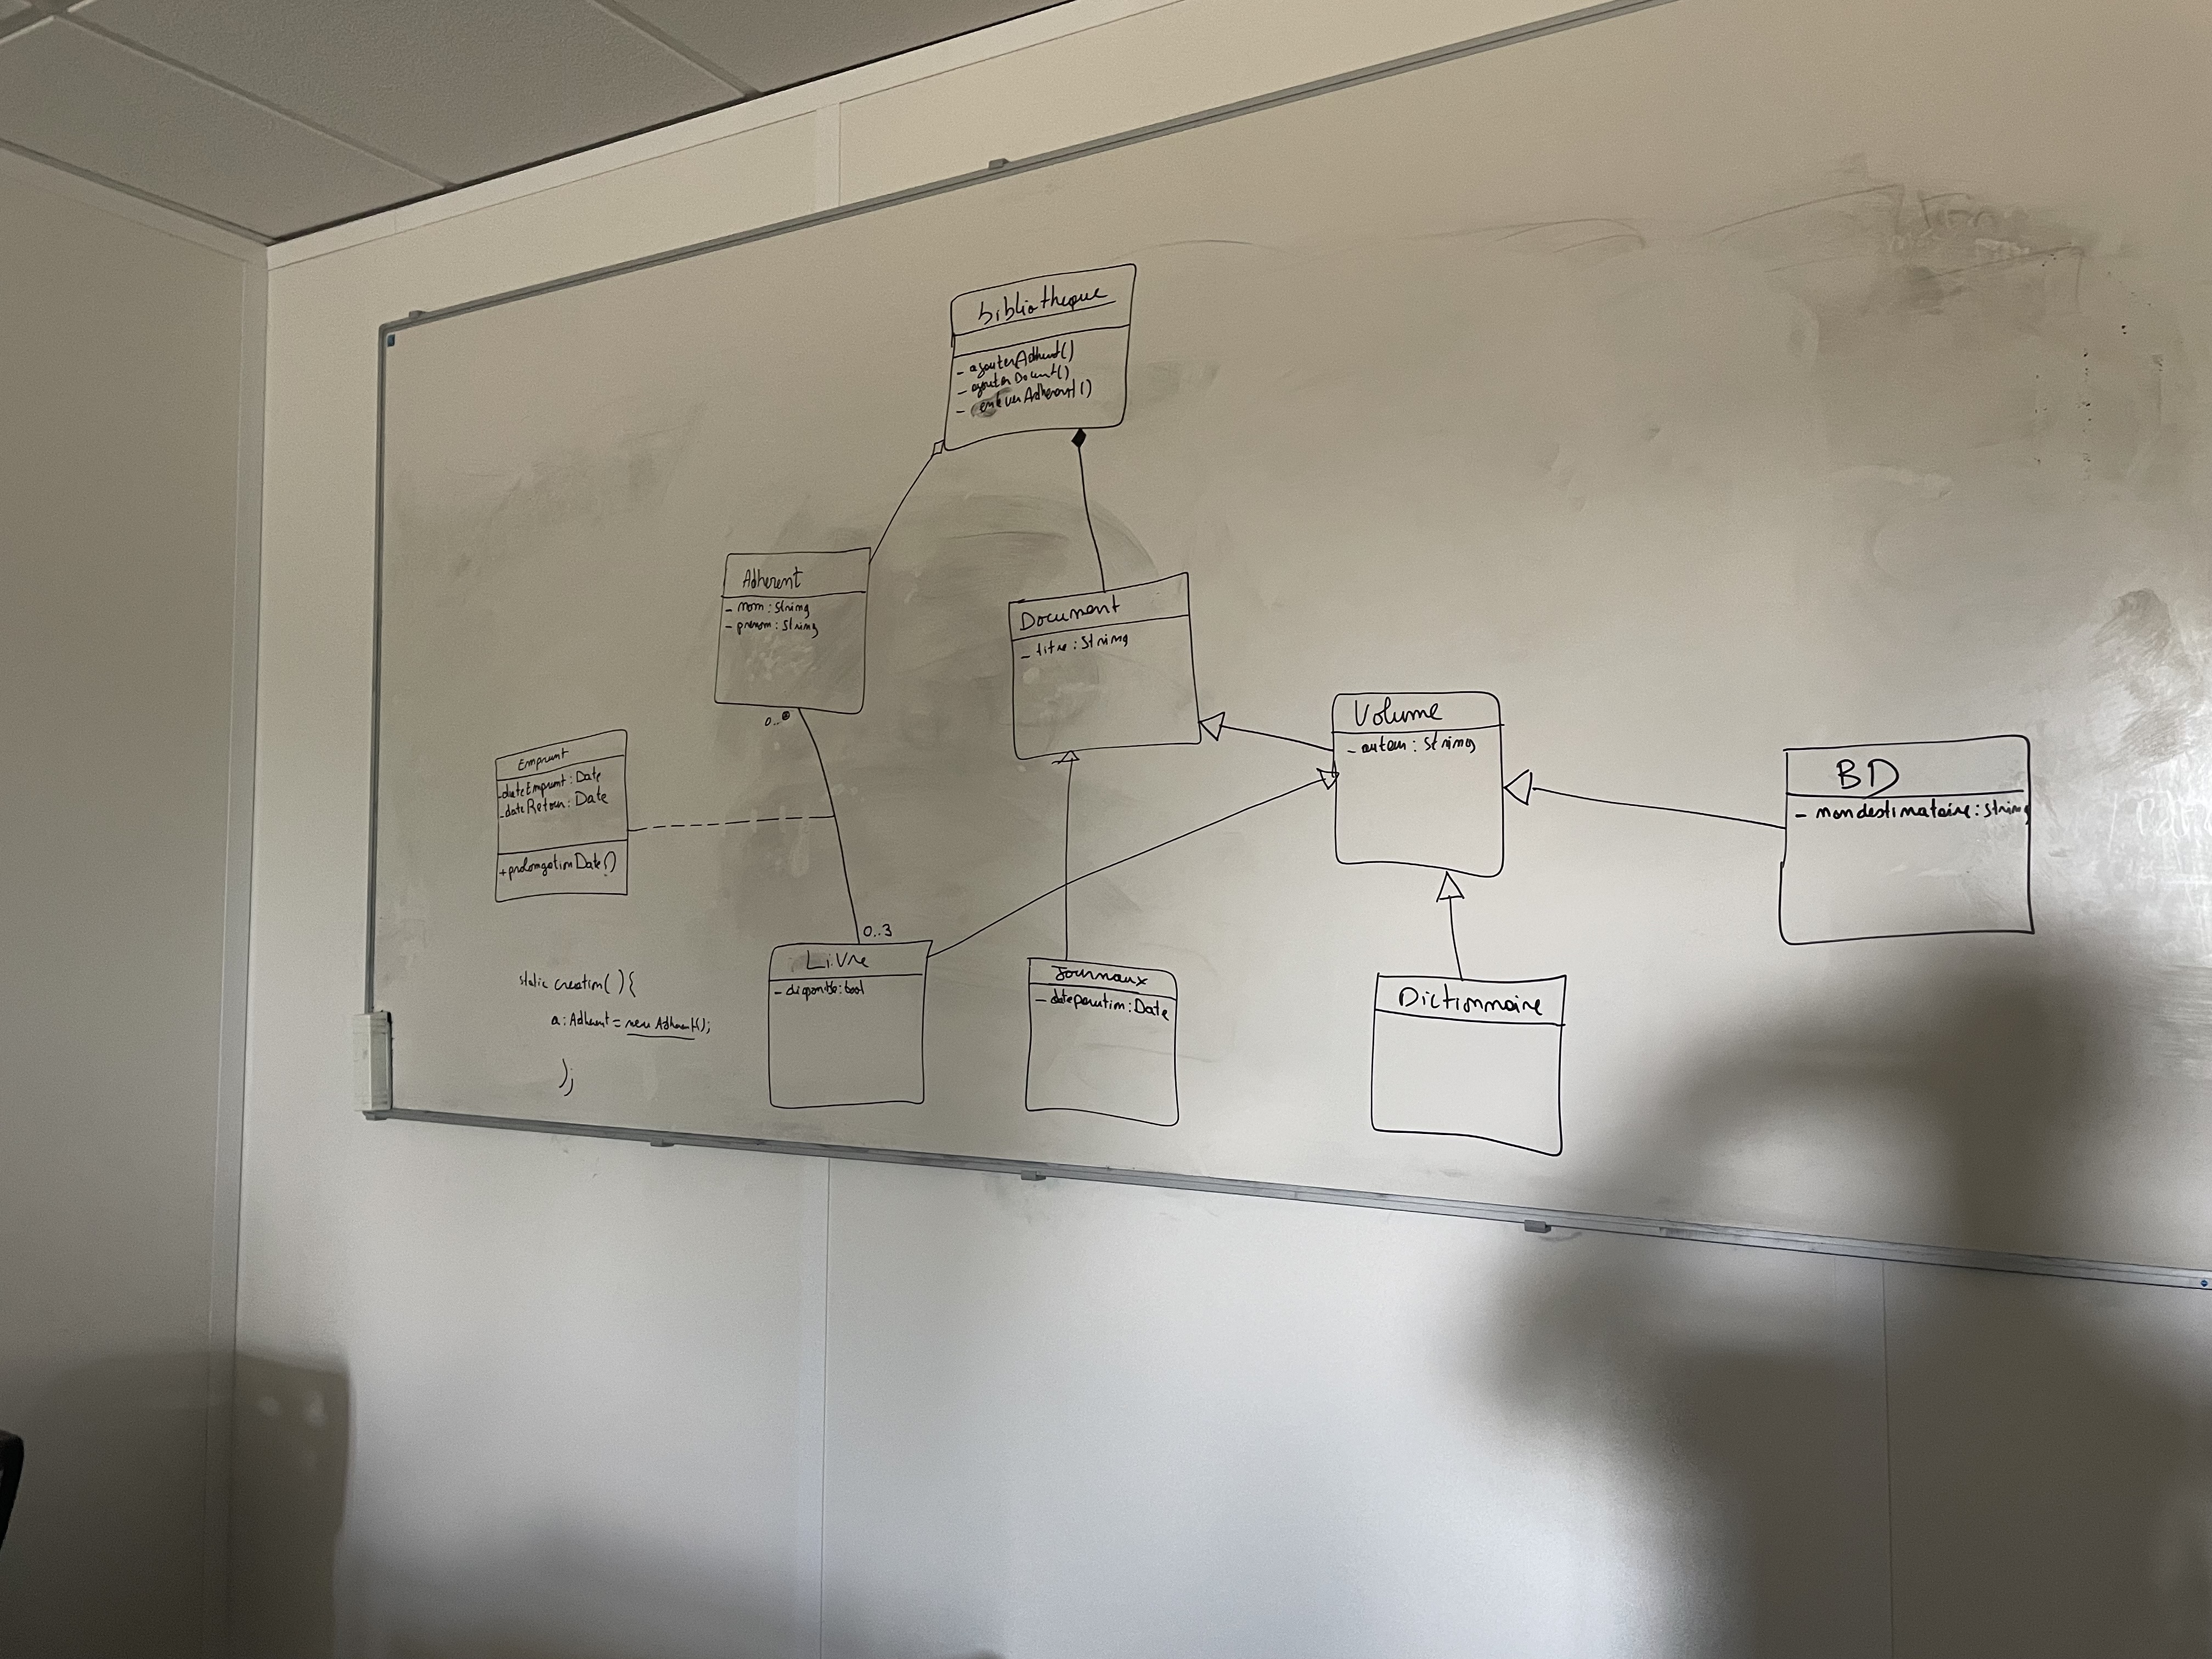 bibliotheque
- ajouterAdherent()
- ajouterDocument()
- enleverAdherent()
Adherent
- nom : String
- prenom : String
0..
Document
- titre : String
Volume
- auteur : String
BD
- nomdestinataire : String
Emprunt
- dateEmprunt : Date
- dateRetour : Date
+ prolongationDate()
0..3
Livre
- disponible : bool
Journaux
- dateparution : Date
Dictionnaire
static creation( ) {
a : Adherent = new Adherent();
);